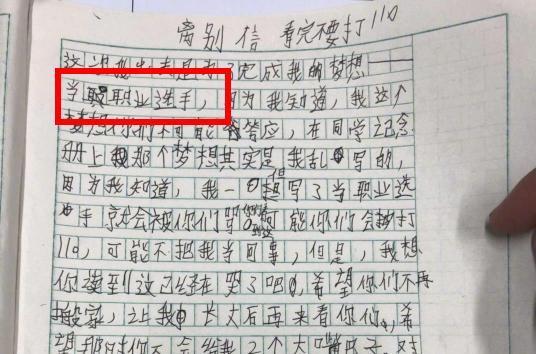 离别信 看完不要打110
这次我出走是为了完成我的梦想——
当职业选手，因为我知道，我这个
梦想你们不可能答应，在同学纪念
册上我那个梦想其实是我乱写的，
因为我知道，我一但写了当职业选
手就会被你们骂 可能你们会打
110，可能不把我当回事，但是，我想
你读到这已经在哭了吧，希望你们不再
搬家，让我长大后再来看你们，希
望那时你不会给我2个大嘴